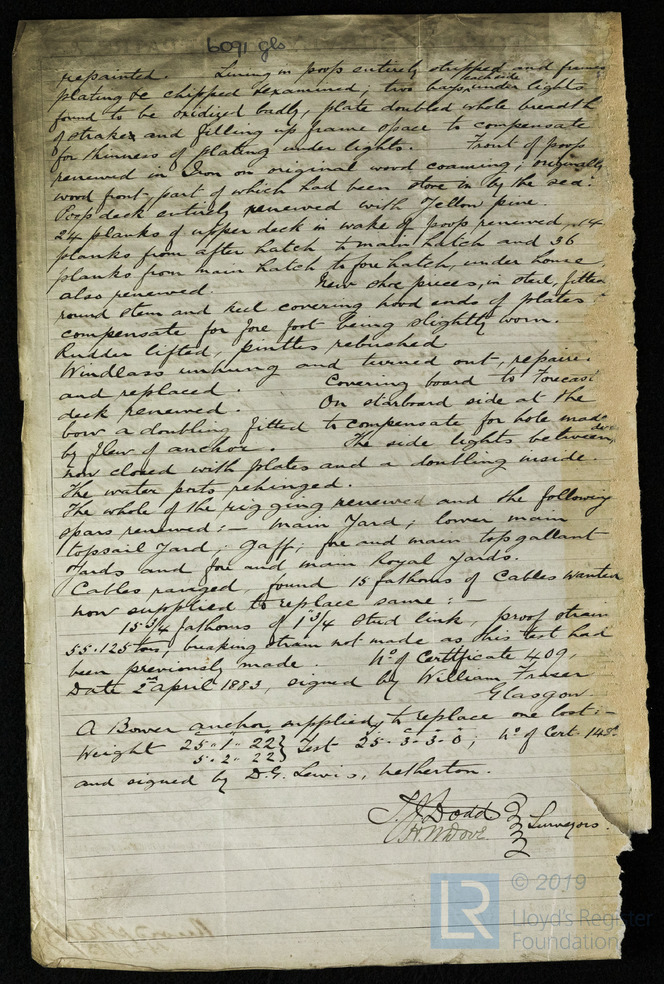 6091 gls
repainted. Lining in poop entirely stripped and frames
plating &c chipped & examined; two bays each side under lights
found to be oxidized badly, plate doubled whole breadth
of strake and filling up frame space to compensate
for thinness of plating under lights. Front of poop
renewed in Iron on original wood coaming; originally
wood front, part of which had been stove in by the sea:
Poop deck entirely renewed with Yellow pine.
24 planks of upper deck in wake of poop renewed, 14
planks from after hatch to main hatch and 36
planks from main hatch to fore hatch, under house,
also renewed. New shoe pieces, in steel, fitted
round stem and keel covering hood ends of plates to
compensate for fore foot being slightly worn.
Rudder lifted, pintles rebushed
Windlass unhung and turned out, repaire
and replaced. Covering board to Forecast
deck renewed. On starboard side at the
bow a doubling fitted to compensate for hole made
by flew of anchor. The side lights between decks
now closed with plates and a doubling inside.
The water ports rehinged.
The whole of the rigging renewed and the following
spars renewed:- Main Yard; lower main
topsail Yard; Gaff; fore and main topgallant
Yards and fore and main Royal Yards.
Cables ranged, found 15 fathoms of Cables wanted
now supplied to replace same:-
15 3/4 fathoms of 1 3/4 Stud link, proof strain
55.125 tons, breaking strain not made as his test had
been previously made. No of Certificate 409,
Date 2nd April 1883, signed by William Fraser
Glasgow.
A Bower anchor supplied, to replace one lost:-
Weight 25" 1" 22 } Test 25-3-3-0; No of Cert 143
5" 2" 22 }
and signed by D.G. Lewis, Netherton.
Dodd
H. W. Dove } Surveyors.
LR
© 2019
Lloyd's Register
Foundation